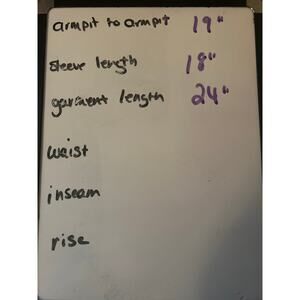 armpit to armpit 19"
sleeve length 18"
garment length 24"
waist
inseam
rise